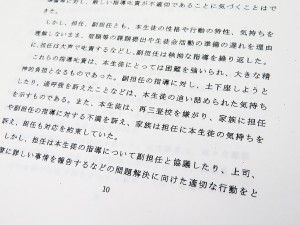 に対し、厳しい指導叱責が不適切であることに気づくことはで
きた。
しかし、担任、副担任とも、本生徒の性格や行動の特性、気持ちを
理解しないまま、宿題等の課題提出や生徒会活動の準備の遅れを理由
に、担任は大声で叱責するなどし、副担任は執拗な指導を繰り返した。
これらの指導叱責は、本生徒にとっては困難を強いられ、大きな精
神的負担となるものであった。副担任の指導に対し、土下座しようと
したり、過呼吸を訴えたことなどは、本生徒の追い詰められた気持ち
を示すものである。また、本生徒は、再三登校を嫌がり、家族に担任
や副担任の指導に対する不満を訴え、家族は担任に本生徒の気持ちを
訴え、担任も対応を約束していた。
しかし、担任は本生徒の指導について副担任と協議したり、上司、
に詳しい事情を報告するなどの問題解決に向けた適切な行動をと
10